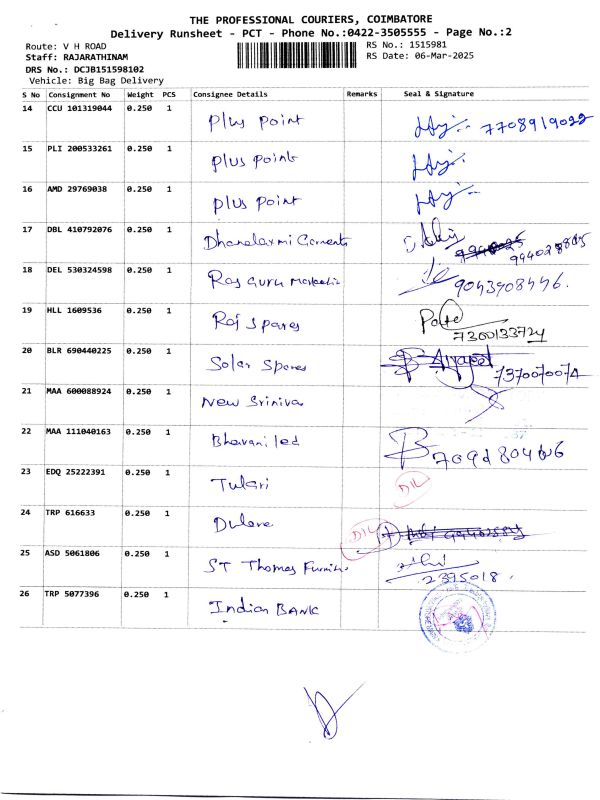 THE PROFESSIONAL COURIERS, COIMBATORE
Delivery Runsheet - PCT - Phone No.:0422-3505555 - Page No.:2
Route: V H ROAD
RS No.: 1515981
Staff: RAJARATHINAM
RS Date: 06-Mar-2025
DRS No.: DCJB151598102
Vehicle: Big Bag Delivery
S No Consignment No Weight PCS Consignee Details Remarks Seal & Signature
14 CCU 101319044 0.250 1 Plus Point 7708919022
15 PLI 200533261 0.250 1 Plus Point
16 AMD 29769038 0.250 1 Plus Point
17 DBL 410792076 0.250 1 Dhanalaxmi Garments
18 DEL 530324598 0.250 1 Raj Guru 9043908446.
19 HLL 1609536 0.250 1 Raj Spares 7300133724
20 BLR 690440225 0.250 1 Solar Spares
21 MAA 600088924 0.250 1 New Sriniva
22 MAA 111040163 0.250 1 Bhavani led
23 EDQ 25222391 0.250 1 Tulari D/L
24 TRP 616633 0.250 1 D/L
25 ASD 5061806 0.250 1 ST Thomas Furnitu 2395018.
26 TRP 5077396 0.250 1 Indian BANK